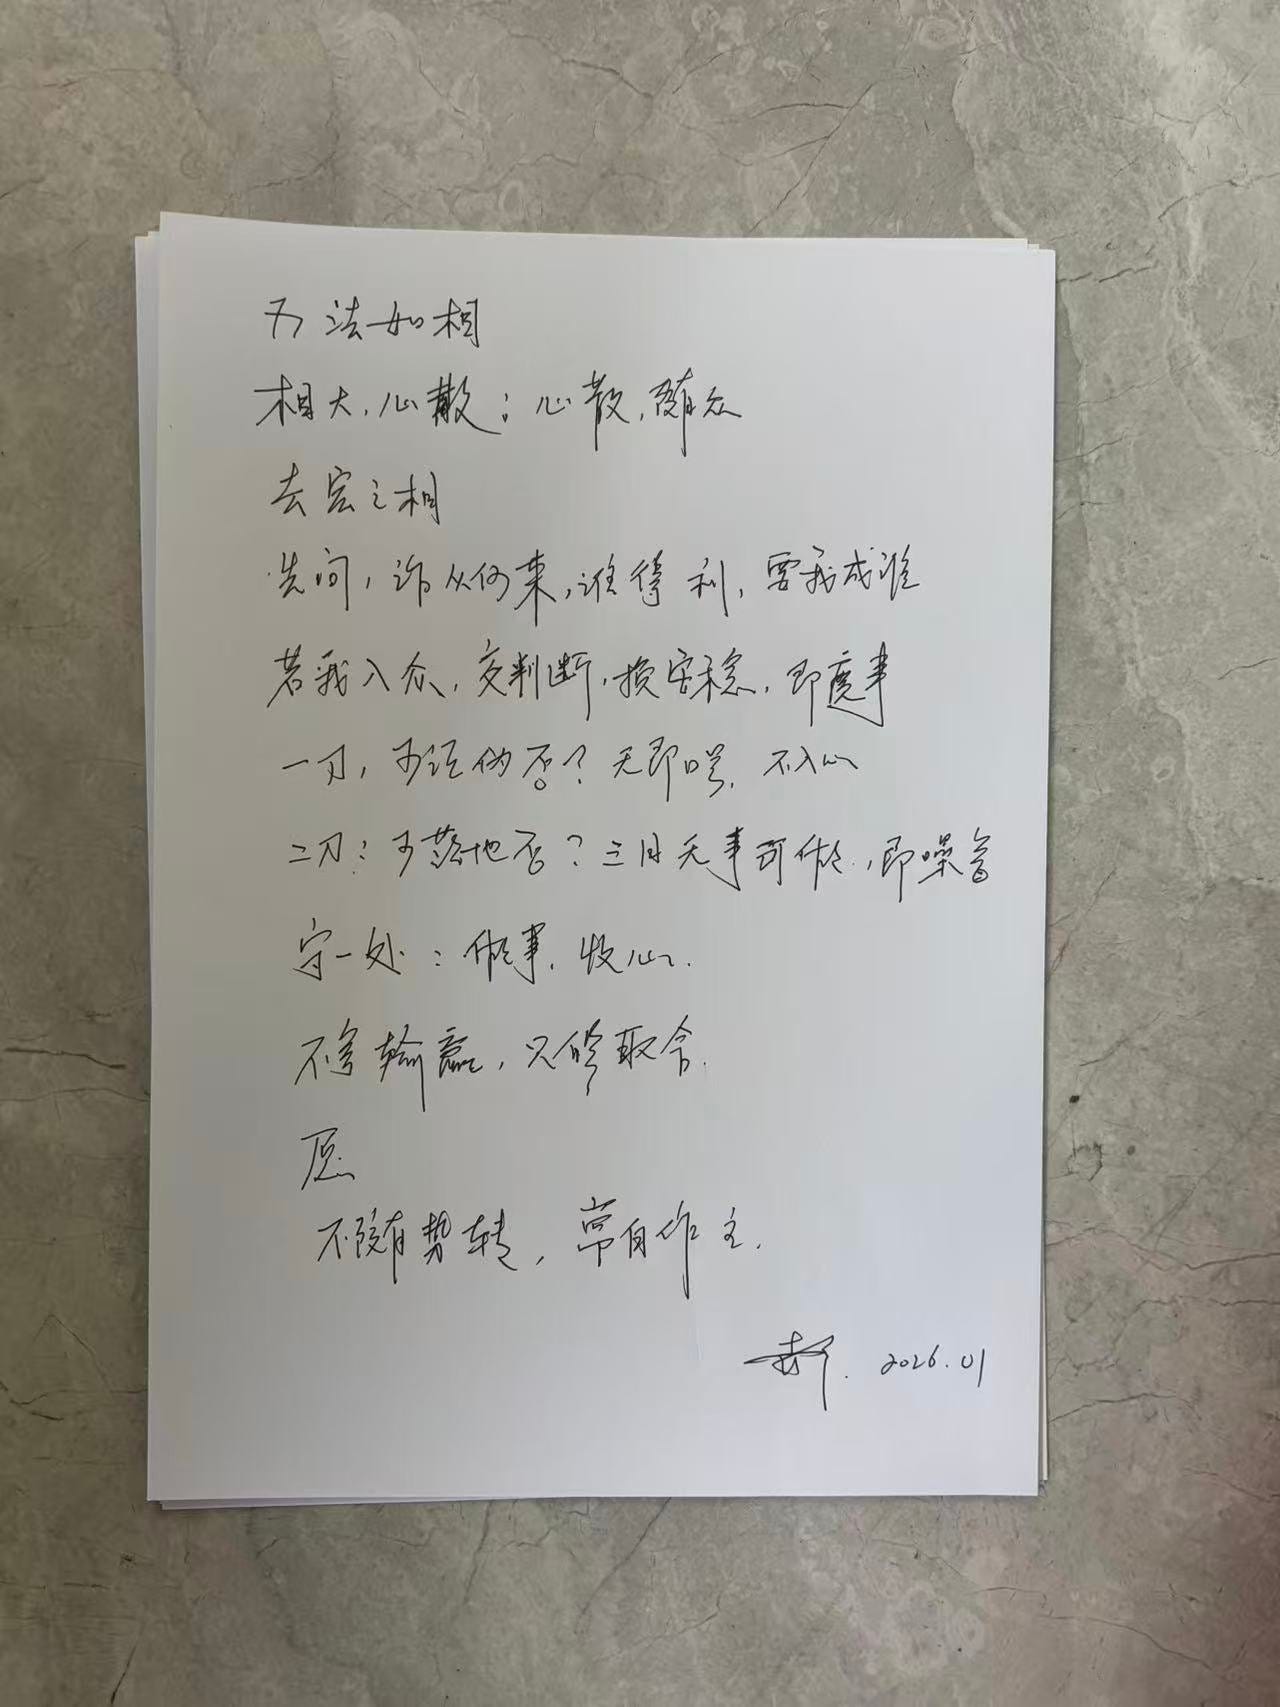 万法如相
相大,心散;心散,随众
去宏之相
先问,诈从何来,谁得利,要我成谁
若我入众,交判断,换安稳,即废事
一刀,可证伪否?无即哄,不入心
二刀:可落地否?三日无事可做,即噪音
守一处:做事,收心.
不争输赢,只修取舍.
愿
不随势转,常自作主.
2026.01